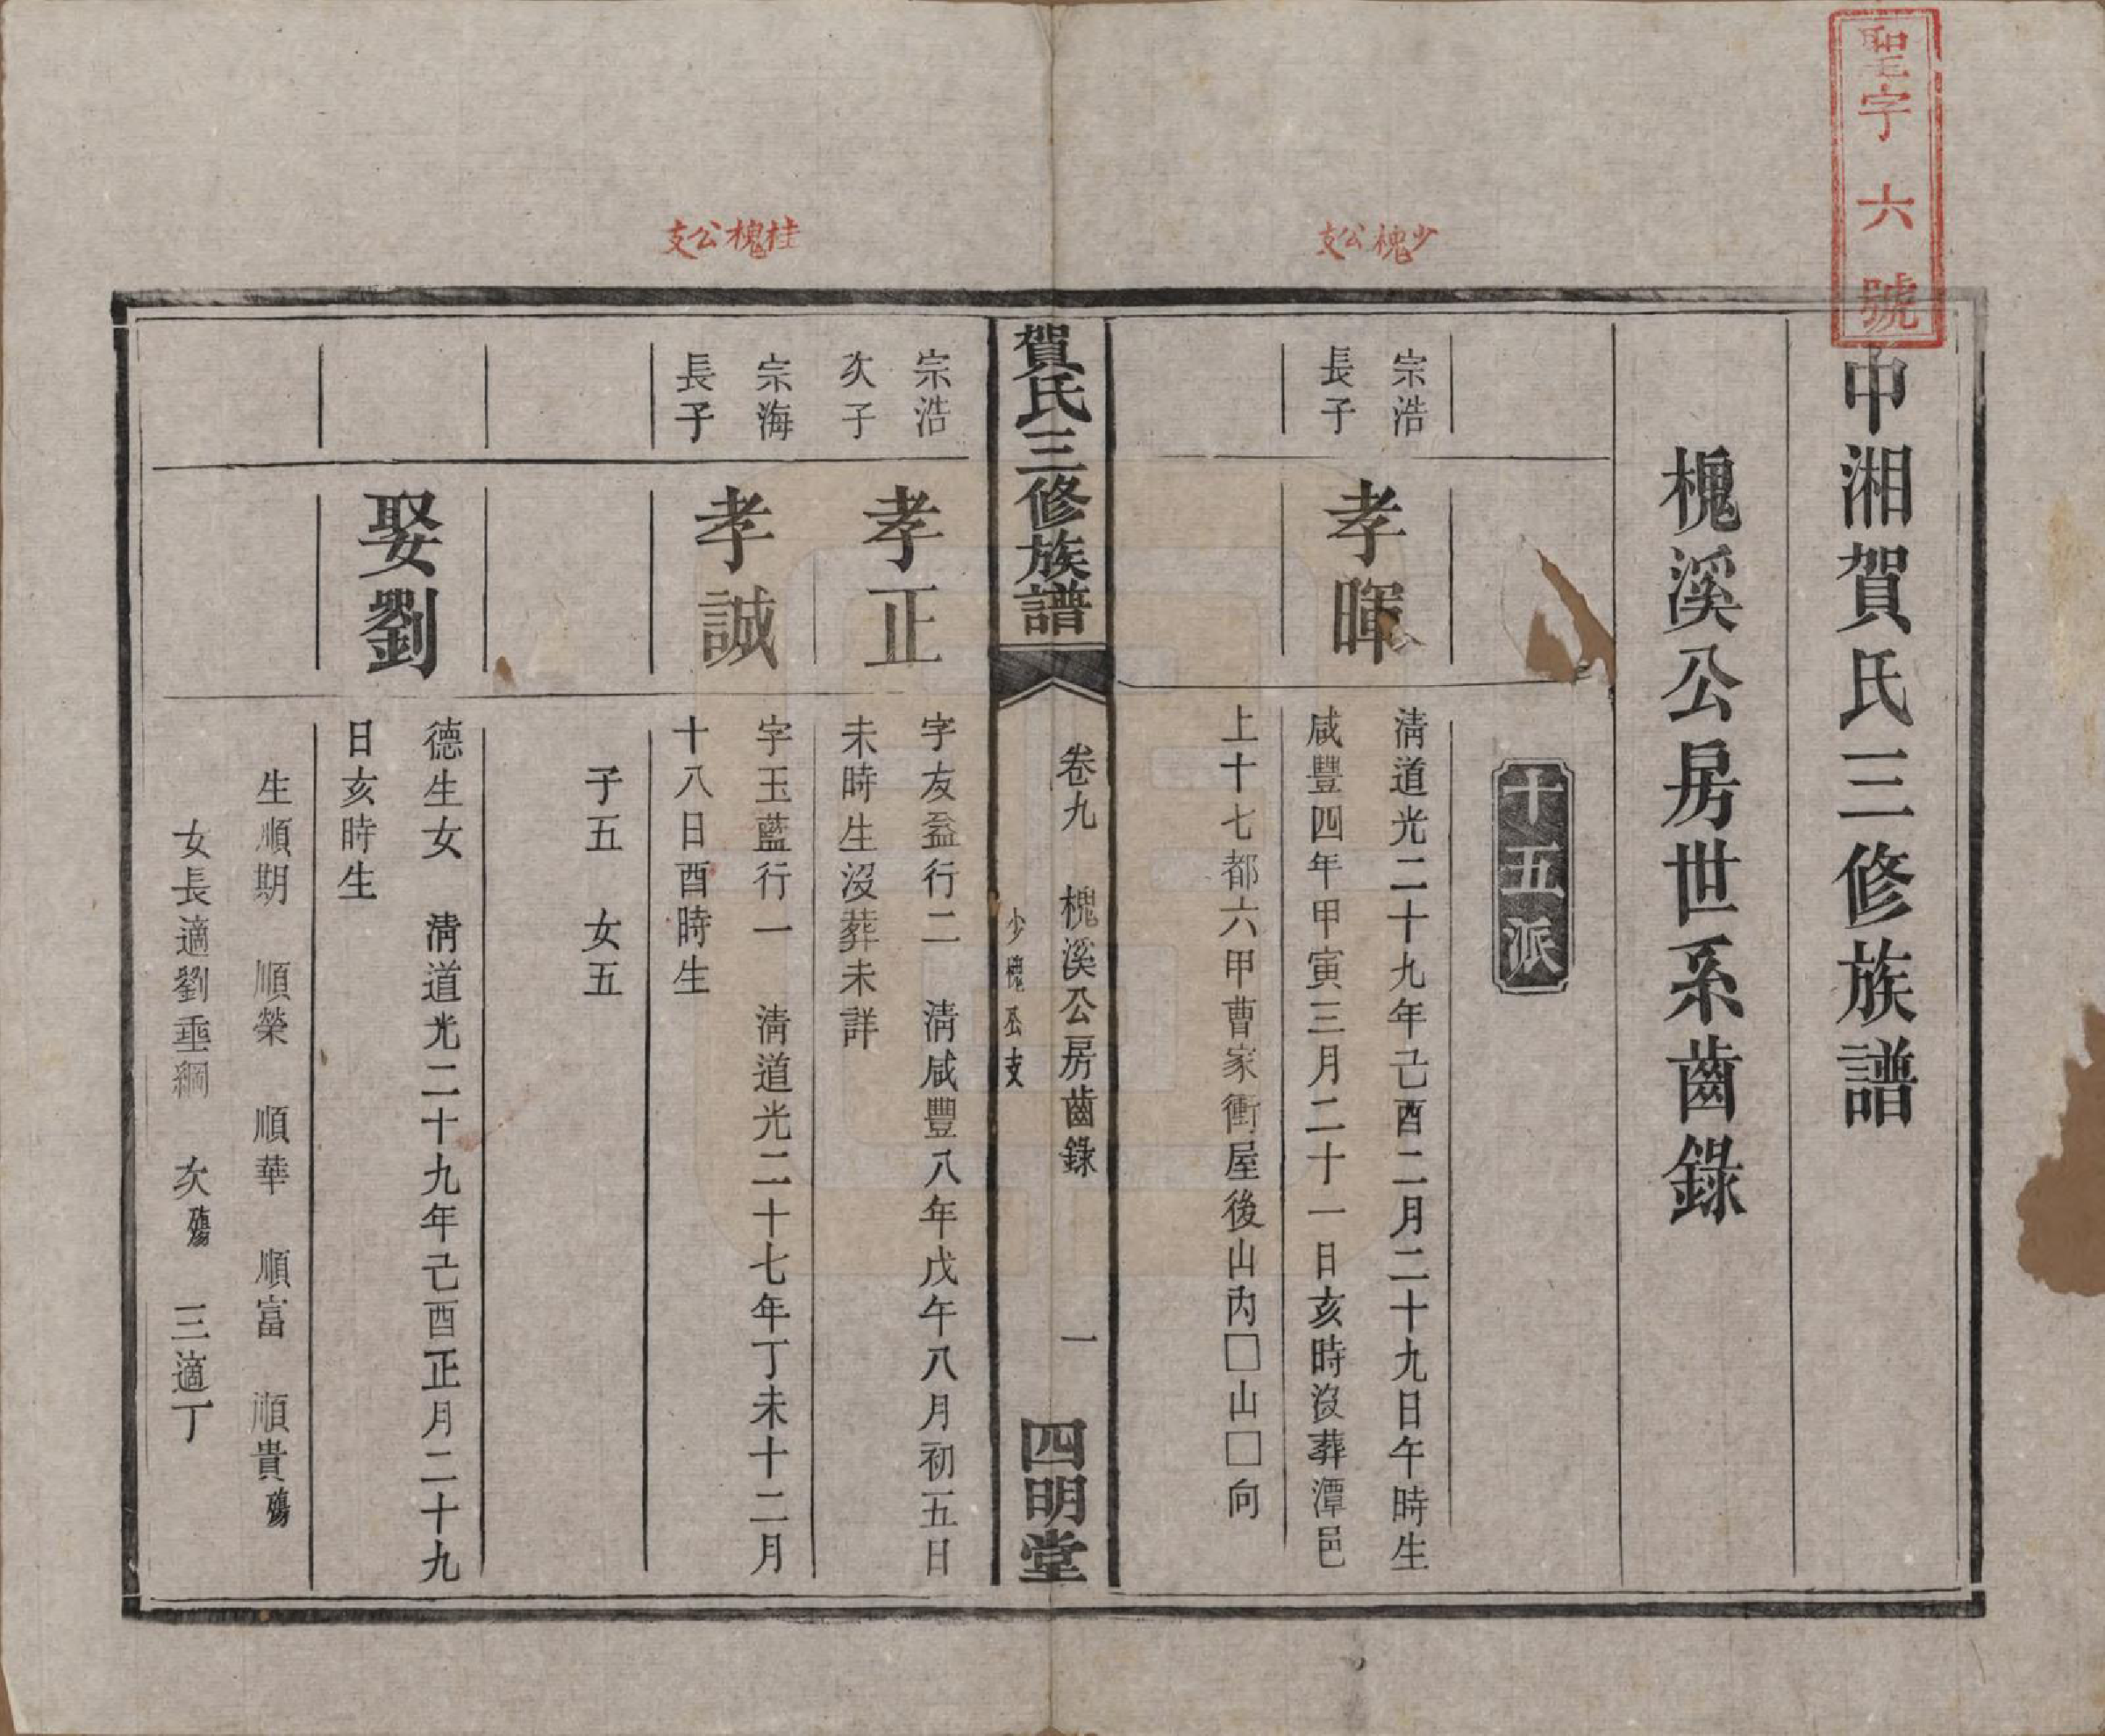 聖字六號
少槐公支
桂槐公支
中湘賀氏三修族譜
槐溪公房世系齒錄
十五派
宗浩
長子
孝暉
清道光二十九年己酉二月二十九日午時生
咸豐四年甲寅三月二十一日亥時沒葬潭邑
上十七都六甲曹家衝屋後山內□山□向
賀氏三修族譜
卷九 槐溪公房齒錄
少槐公支
一
四明堂
宗浩
次子
孝正
字友益行二 清咸豐八年戊午八月初五日
未時生沒葬未詳
宗海
長子
孝誠
字玉藍行一 清道光二十七年丁未十二月
十八日酉時生
子五 女五
娶劉
德生女 清道光二十九年己酉正月二十九
日亥時生
生順期 順榮 順華 順富 順貴殤
女長適劉垂綱 次殤 三適丁